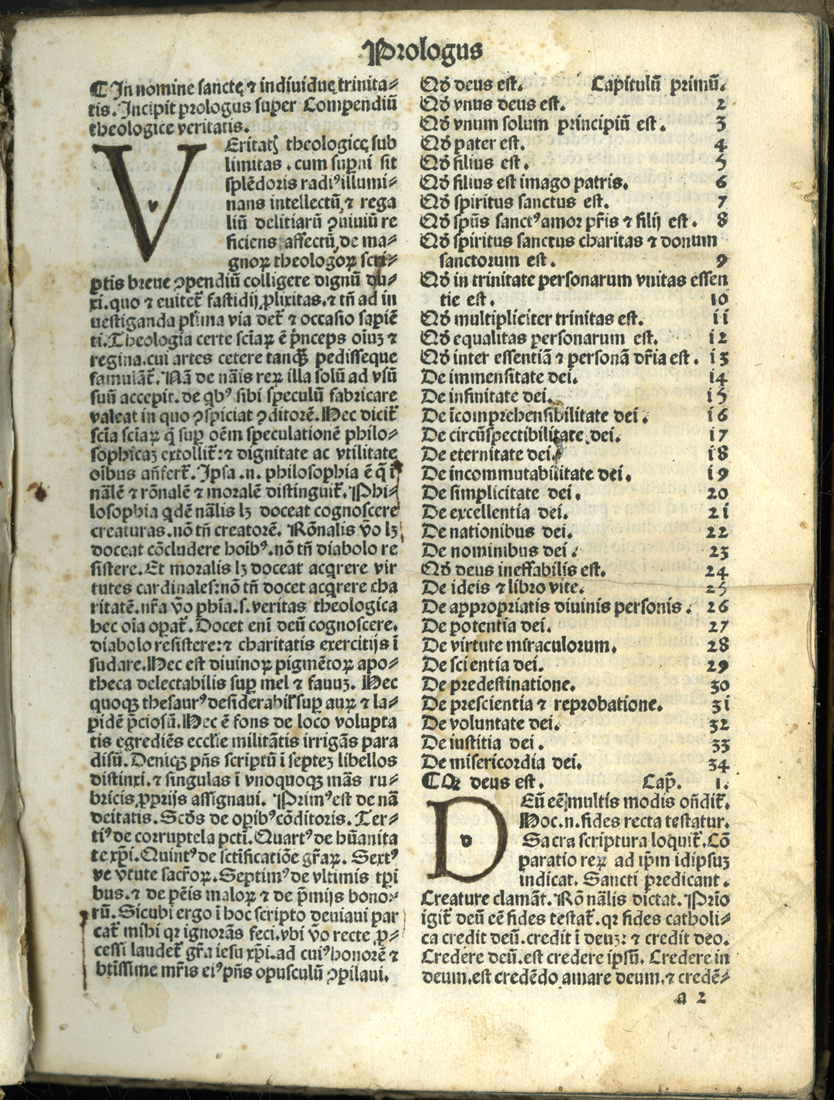 Prologus
¶ In nomine sanctę ⁊ indiuiduę trinita⸗
tis. Incipit prologus super Compendiū
theologice veritatis.
VEritatꝭ theologicę sub
limitas . cum suꝑni sit
splēdoris radiꝰ illumi⸗
nans intellectū, ⁊ rega
liū delitiarū ꝯuiuiū re
ficiens affectū, de ma⸗
gnoꝝ theologoꝝ scri⸗
ptis breue ꝯpendiū colligere dignū du⸗
xi. quo ⁊ euitet̄ fastidij ꝓlixitas. ⁊ tn̄ ad in
uestiganda pl̄ima via det̄ ⁊ occasio sapiē
ti. Theologia certe sciaꝝ ē p̄nceps oīuꝫ ⁊
regina. cui artes cetere tanqꝫ pedisseque
famulāt̄. Nā de nāis reꝝ illa solū ad vsū
suū accepit. de qbꝰ sibi speculū fabricare
valeat in quo ꝯspiciat ꝯditorē. Hec dicit̄
scīa sciaꝝ q̄ suꝑ oēm speculationē philo⸗
sophicaꝫ extollit̄: ⁊ dignitate ac vtilitate
oībus añfert̄. Ipsa .n. philosophia ē q̄ ī
nālē ⁊ rōnalē ⁊ moralē distinguit̄. Phi⸗
losophia qdē nālis lꝫ doceat cognoscere
creaturas. nō tn̄ creatorē. Rōnalis ꝟo lꝫ
doceat cōcludere hoībꝰ. nō tn̄ diabolo re
sistere. Et moralis lꝫ doceat acqrere vir
tutes cardinales: nō tn̄ docet acqrere cha
ritatē. nr̄a ꝟo phīa .s. veritas theologica
hec oīa opat̄. Docet enī deū cognoscere.
diabolo resistere: ⁊ charitatis exercitijs ī
sudare. Hec est diuinoꝝ pigmētoꝝ apo⸗
theca delectabilis suꝑ mel ⁊ fauuꝫ. Hec
quoqꝫ thesaurꝰ desiderabil̓ suꝑ auꝝ ⁊ la⸗
pidē p̄ciosū. Hec ē fons de loco volupta
tis egrediēs eccl̓ie militātis irrigās para
disū. Deniqꝫ pn̄s scriptū ī septeꝫ libellos
distinxi. ⁊ singulas ī vnoquoqꝫ māς ru⸗
bricis ꝓprijs assignaui. Primꝰ est de nā
deitatis. Scd̄s de opībꝰ cōditoris. Ter⸗
tiꝰ de corruptela pctī. Quartꝰ de hūanita
te xp̄i. Quintꝰ de sctīficatiōe gr̄aꝝ. Sextꝰ
de ꝟtute sacr̄oꝝ. Septimꝰ de vltimis tꝑi
bus. ⁊ de pēis maloꝝ ⁊ de p̄mijs bonor⸗
rū. Sicubi ergo ī hoc scripto deuiaui par
cat̄ mihi qr ignorās feci. vbi ꝟo recte ꝓ⸗
cessi laudet̄ gr̄a iesu xp̄i. ad cuiꝰ honorē ⁊
btīssime mr̄is eiꝰ pn̄s opusculū ꝯpilaui.
Qd̓ deus est. Capitulū primū.
Qd̓ vnus deus est. 2
Qd̓ vnum solum principiū est . 3
Qd̓ pater est. 4
Qd̓ filius est. 5
Qd̓ filius est imago patris. 6
Qd̓ spiritus sanctus est. 7
Qd̓ sp̄us sanctꝰ amor pr̄is ⁊ filij est . 8
Qd̓ spiritus sanctus charitas ⁊ donum
sanctorum est . 9
Qd̓ in trinitate personarum vnitas essen
tie est . 10
Qd̓ multipliciter trinitas est. ii
Qd̓ equalitas personarum est. i2
Qd̓ inter essentiā ⁊ personā dr̄ia est . i3
De immensitate dei. i4
De infinitate dei. i5
De īcomprehensibilitate dei . i6
De circūspectibilitate dei. i7
De eternitate dei. i8
De incommutabilitate dei . i9
De simplicitate dei . 20
De excellentia dei. 2i
De nationibus dei. 22
De nominibus dei . 23
Qd̓ deus ineffabilis est. 24
De ideis ⁊ libro vite. 25
De appropriatis diuinis personis . 26
De potentia dei. 27
De virtute miraculorum. 28
De scientia dei. 29
De predestinatione. 30
De prescientia ⁊ reprobatione. 3i
De voluntate dei. 32
De iustitia dei . 33
De misericordia dei. 34
¶ Qꝛ deus est. Cap̄. i.
DEū eē multis modis on̄dit̄.
Hoc .n. fides recta testatur.
Sacra scriptura loquit̄. Cō
paratio reꝝ ad ip̄m idipsuꝫ
indicat. Sancti predicant .
Creature clamāt. Rō nālis dictat. Prīo
igit̄ deū eē fides testat̄. qr fides catholi⸗
ca credit deū. credit ī deuꝫ: ⁊ credit deo.
Credere deū. est credere ipsū. Credere in
deum. est credēdo amare deum. ⁊ credē⸗
a 2